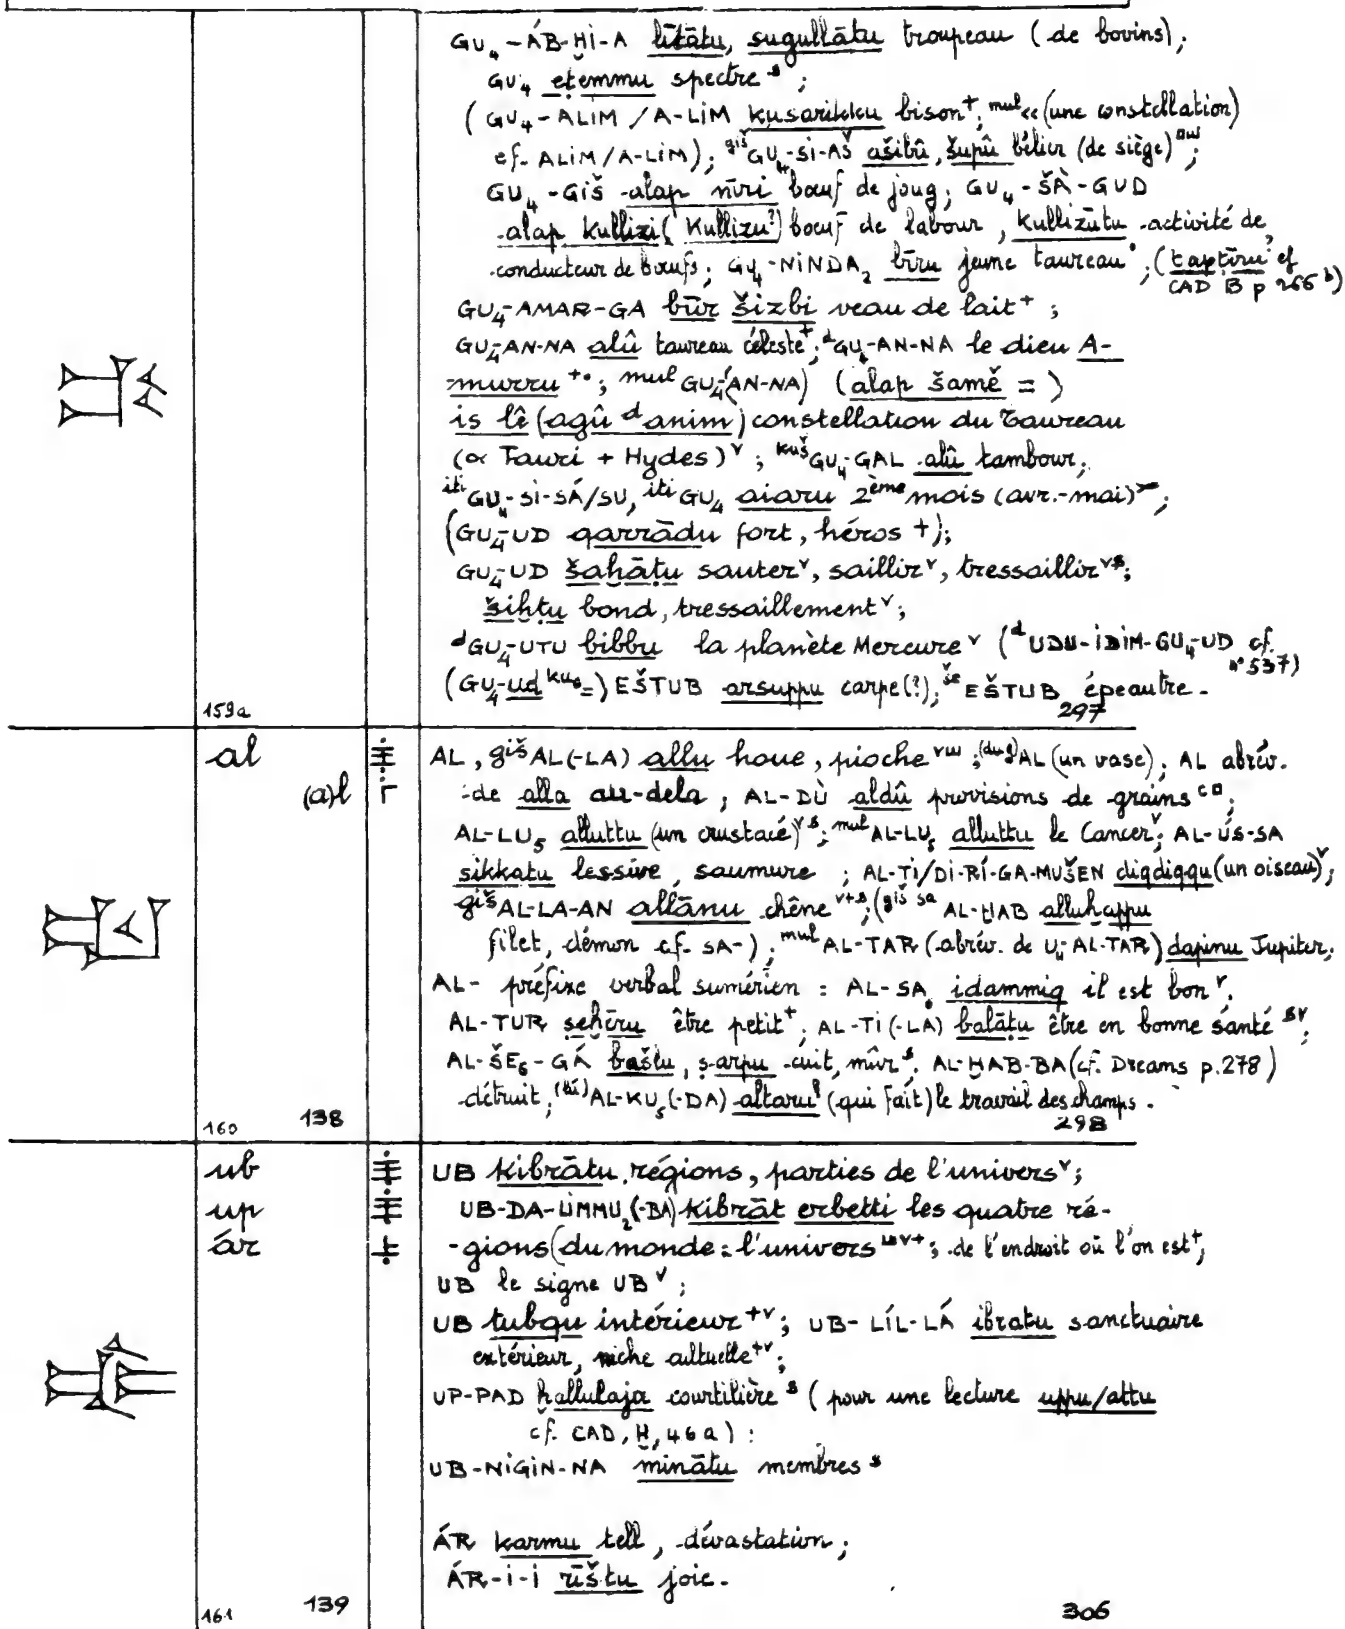 GU₄-ÁB-ḪI-A lītātu, sugullātu troupeau (de bovins);
GU₄ eṭemmu spectre ˢ;
(GU₄-ALIM / A-LIM kusarikku bison⁺, ᵐᵘˡ << (une constellation)
cf. ALIM/A-LIM); ᵍⁱˢGU₄-SI-AŠ ašibû, šupû bélier (de siège);
GU₄-GIŠ alap nīri bœuf de joug; GU₄-ŠÀ-GUD
alap kullizi (Kullizu?) bœuf de labour, kullizūtu activité de
conducteur de bœufs; GU₄-NINDA₂ bīru jeune taureau; (taptīru? cf
CAD B p 266 b)
GU₄-AMAR-GA būr šizbi veau de lait⁺;
GU₄-AN-NA alû taureau céleste⁺; ᵈGU₄-AN-NA le dieu A-
murru⁺; ᵐᵘˡGU₄(AN-NA) (alap šamê =)
is lê (agû ᵈanim) constellation du Taureau
(α Tauri + Hydes)ᵛ; ᵏᵘˢGU₄-GAL alû tambour;
ⁱᵗⁱGU₄-SI-SÁ/SU, ⁱᵗⁱGU₄ aiaru 2ème mois (avr.-mai);
(GU₄-UD qarrādu fort, héros +);
GU₄-UD šaḫāṭu sauterᵛ, saillirᵛ, tressaillirᵛˢ;
šiḫṭu bond, tressaillementᵛ;
ᵈGU₄-UTU bibbu la planète Mercureᵛ (ᵈUDU-IDIM-GU₄-UD cf.
n°537)
(GU₄-ud ᵏᵘ⁶=) EŠTUB arsuppu carpe(?); ˢᵉEŠTUB épeautre.
159a 297
al AL, ᵍⁱˢAL(-LA) allu houe, pioche ᵛʷ; (ᵈᵘᵍ)AL (un vase); AL abrév.
(a)l de alla au-dela; AL-DÙ aldû provisions de grains;
AL-LU₅ alluttu (un crustacé)ᵛˢ; ᵐᵘˡAL-LU₅ alluttu le Cancerᵛ; AL-ÚS-SA
sikkatu lessive, saumure; AL-TI/DI-RÍ-GA-MUŠEN diqdiqqu (un oiseau)ᵛ;
ᵍⁱˢAL-LA-AN allānu chêne ᵛ⁺ˢ; (ᵍⁱˢ ˢᵃ AL-ḪAB alluḫappu
filet, démon cf. SA-); ᵐᵘˡAL-TAR (abrév. de U₄-AL-TAR) dapinu Jupiter;
AL- préfixe verbal sumérien : AL-SA₆ idammiq il est bonᵛ,
AL-TUR ṣeḫēru être petit⁺, AL-TI(-LA) balāṭu être en bonne santé ˢᵛ;
AL-ŠE₆-GÁ bašlu, ṣarpu cuit, mûrˢ, AL-ḪAB-BA (cf. Dreams p.278)
détruit, (ˡᵘ)AL-KU₅(-DA) altaru? (qui fait) le travail des champs.
160 138 298
ub UB kibrātu régions, parties de l'universᵛ;
up UB-DA-LIMMU₂(-BA) kibrāt erbetti les quatre ré-
ár -gions (du monde : l'univers; de l'endroit où l'on est⁺;
UB le signe UBᵛ;
UB tubqu intérieur⁺ᵛ; UB-LÍL-LÁ ibratu sanctuaire
extérieur, niche cultuelle⁺ᵛ;
UP-PAD ḫallulaja courtilière ˢ (pour une lecture uppu/attu
cf. CAD, Ḫ, 46 a):
UB-NIGIN-NA minâtu membres ˢ
ÁR karmu tell, dévastation;
ÁR-i-i rīštu joie.
161 139 306